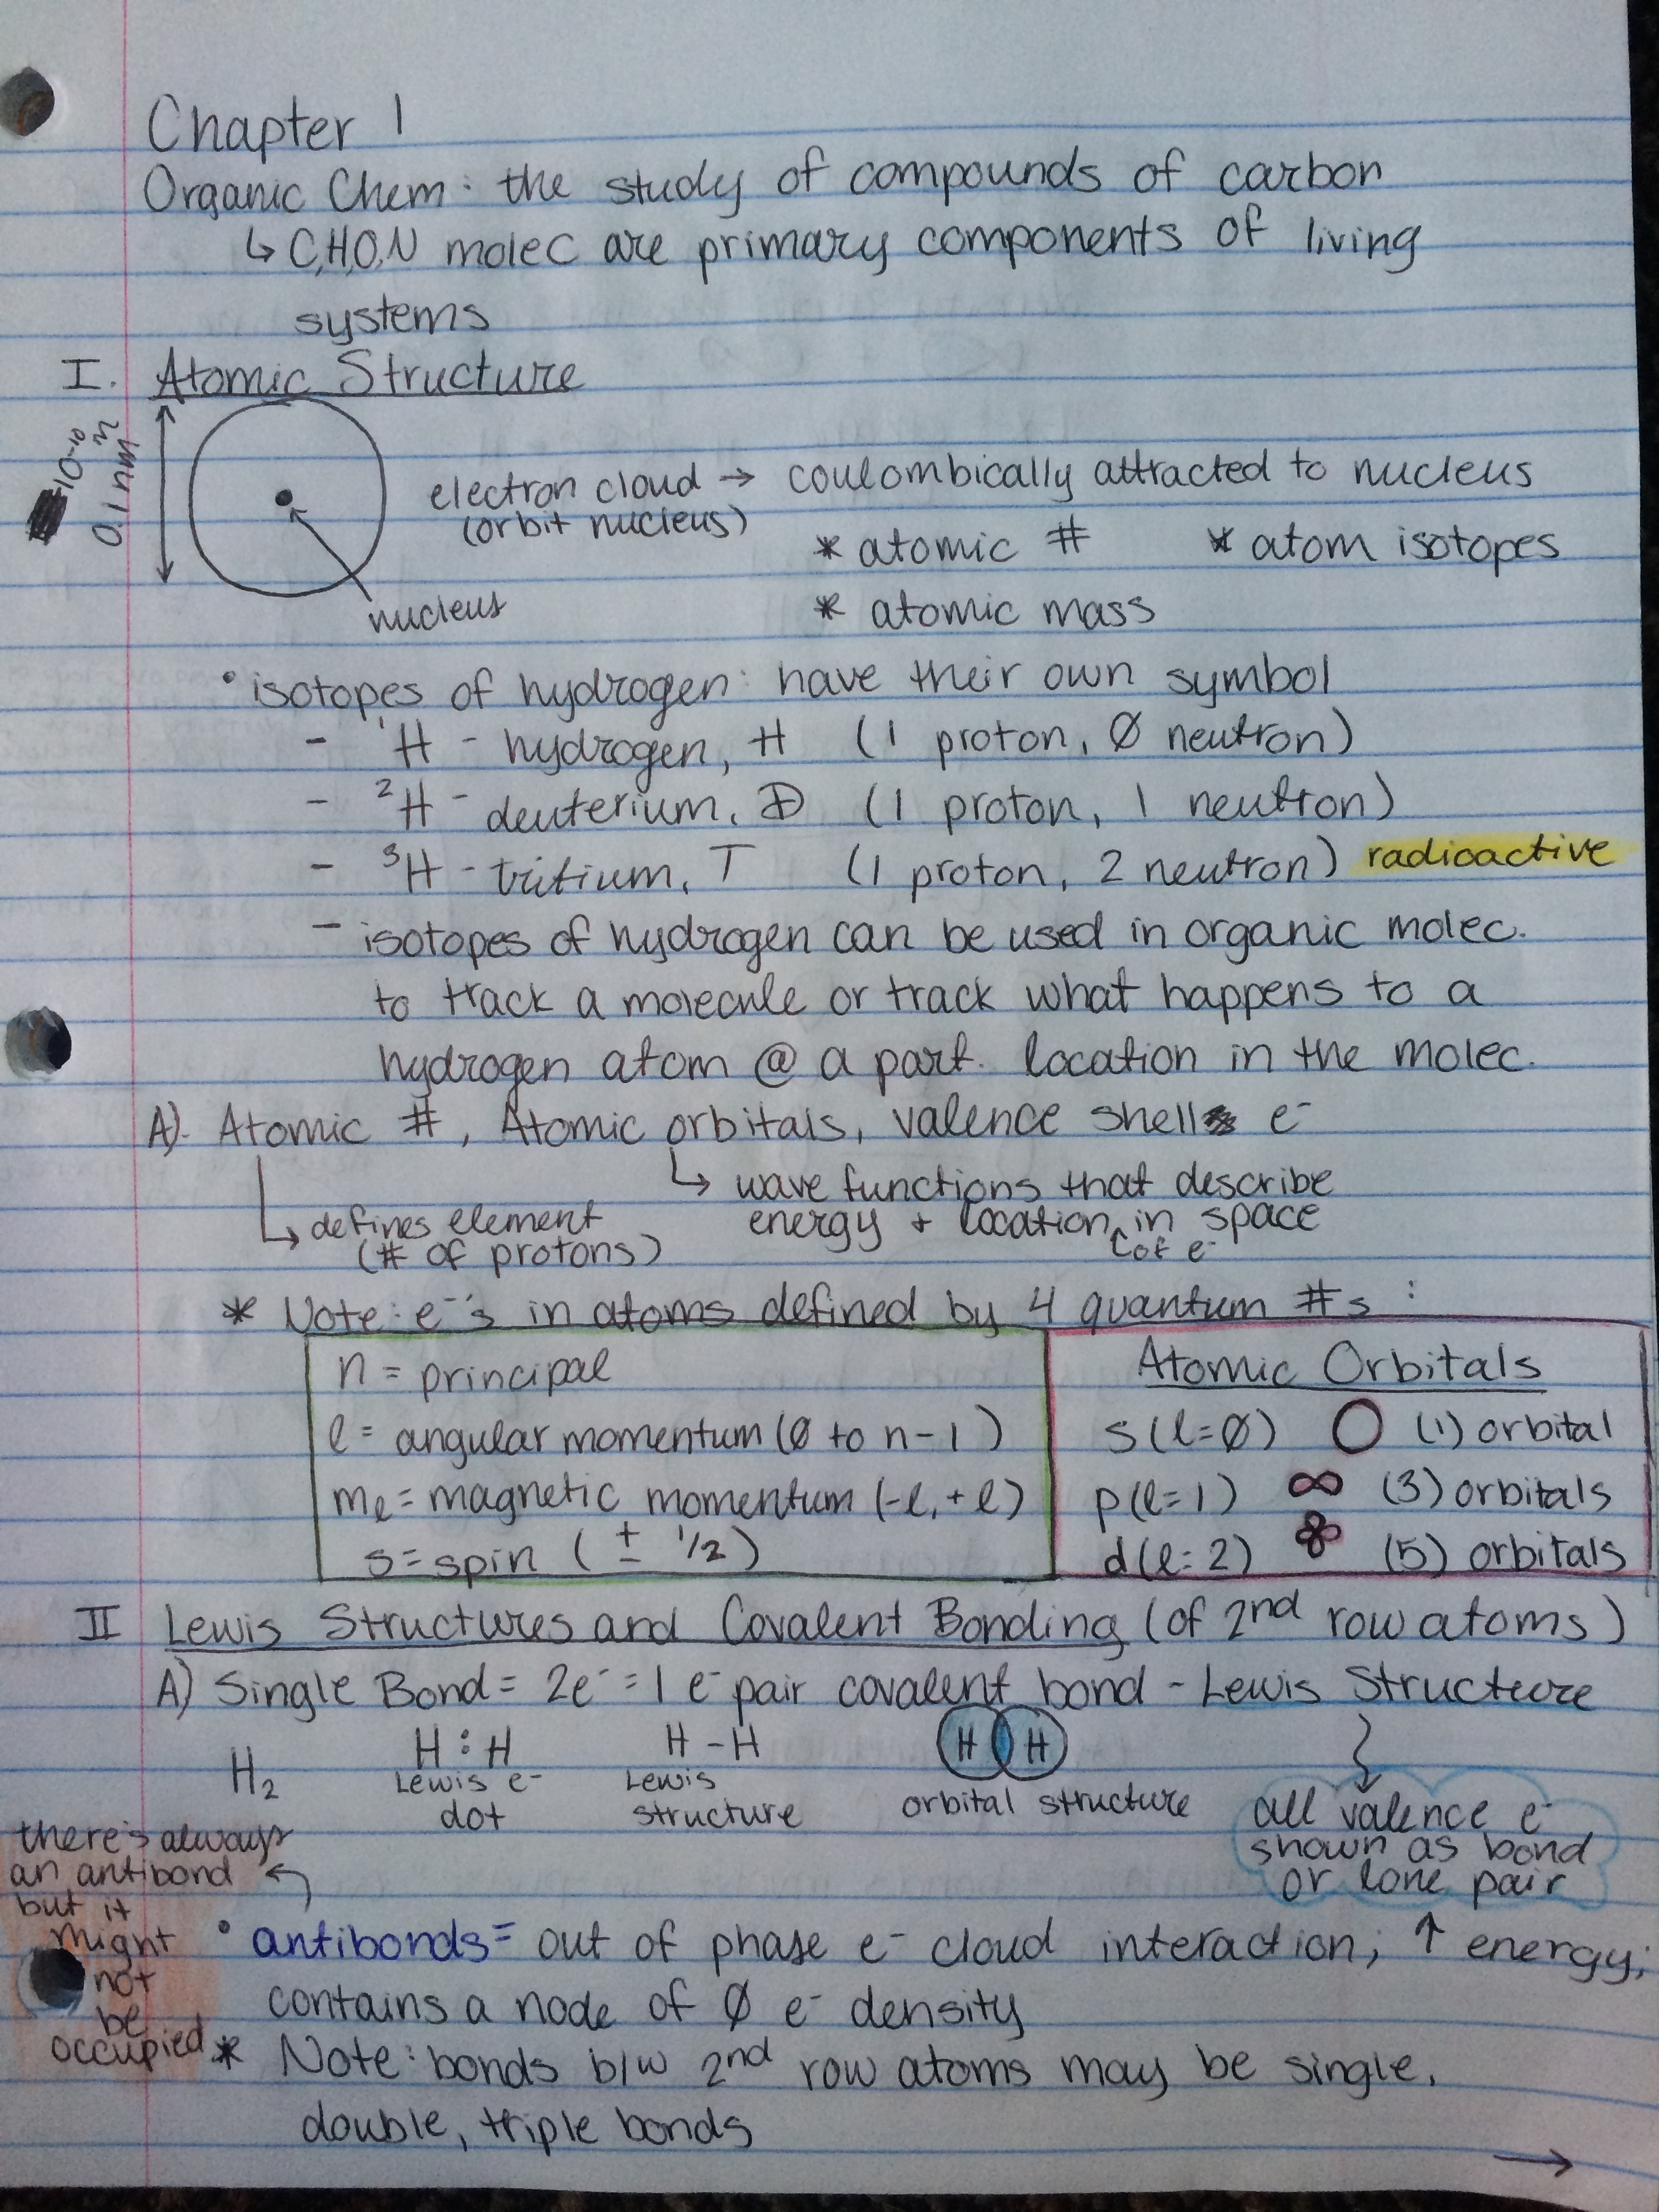 Chapter 1
Organic Chem: the study of compounds of carbon
↳ C,H,O,N molec are primary components of living
systems
I. Atomic Structure
10⁻¹⁰ m
0.1 nm
electron cloud → coulombically attracted to nucleus
(orbit nucleus)
* atomic # * atom isotopes
nucleus
* atomic mass
• isotopes of hydrogen: have their own symbol
- ¹H - hydrogen, H (1 proton, Ø neutron)
- ²H - deuterium, D (1 proton, 1 neutron)
- ³H - tritium, T (1 proton, 2 neutron) radioactive
- isotopes of hydrogen can be used in organic molec.
to track a molecule or track what happens to a
hydrogen atom @ a part. location in the molec.
A). Atomic #, Atomic orbitals, valence shell e⁻
↳ wave functions that describe
energy + location in space
of e⁻
↳ defines element
(# of protons)
* Note: e⁻'s in atoms defined by 4 quantum #s :
n = principal
ℓ = angular momentum (Ø to n-1)
mℓ = magnetic momentum (-ℓ, +ℓ)
s = spin (± 1/2)
Atomic Orbitals
s (ℓ=Ø) (1) orbital
p (ℓ=1) (3) orbitals
d (ℓ=2) (5) orbitals
II Lewis Structures and Covalent Bonding (of 2nd row atoms)
A) Single Bond = 2e⁻ = 1 e⁻ pair covalent bond - Lewis Structure
H₂
H : H
Lewis e⁻
dot
H - H
Lewis
structure
H H
orbital structure
all valence e⁻
shown as bond
or lone pair
there's always
an antibond
but it
might
not
be
occupied
• antibonds = out of phase e⁻ cloud interaction; ↑ energy;
contains a node of Ø e⁻ density
* Note: bonds b/w 2nd row atoms may be single,
double, triple bonds
→